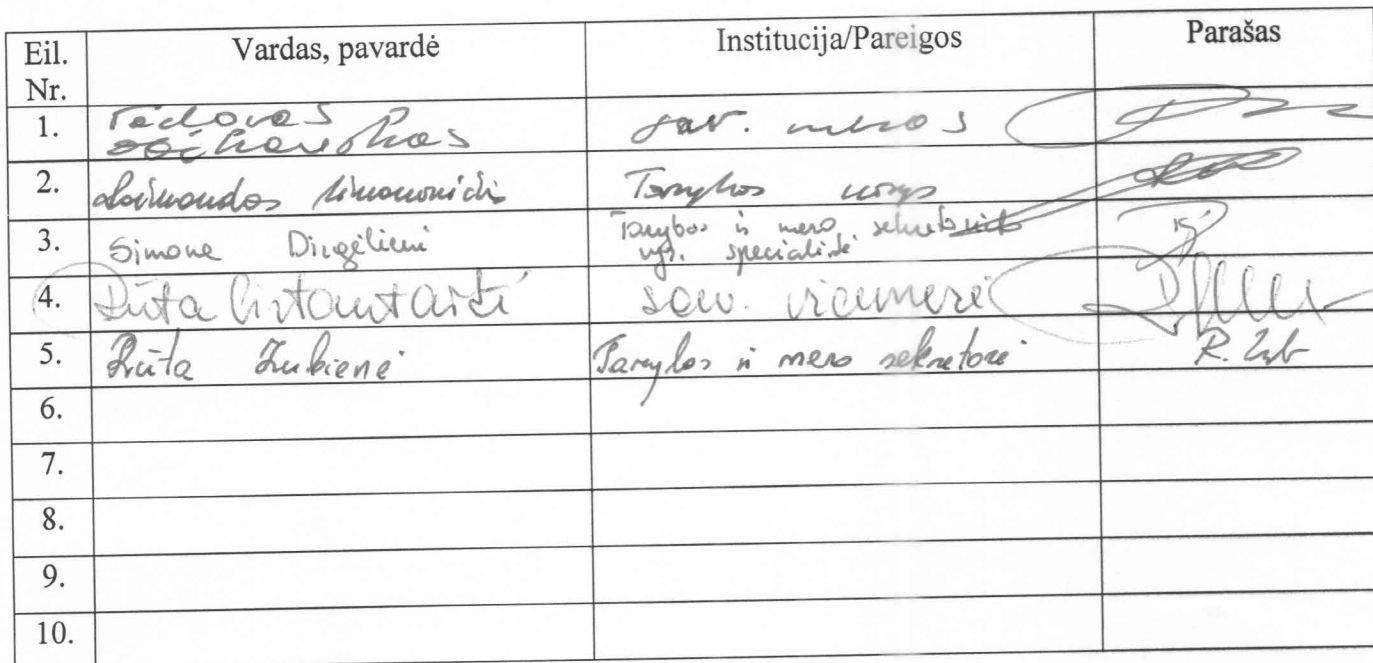 Eil. Nr. Vardas, pavardė Institucija/Pareigos Parašas
1. sav. meras
2. Tarybos narys
3. Simona Dirgėlienė Tarybos ir mero sekretoriato
vyr. specialistė
4. Rūta Cirtautaitė sav. vicemerė
5. Rūta Zubienė Tarybos ir mero sekretorė R. Zub
6.
7.
8.
9.
10.